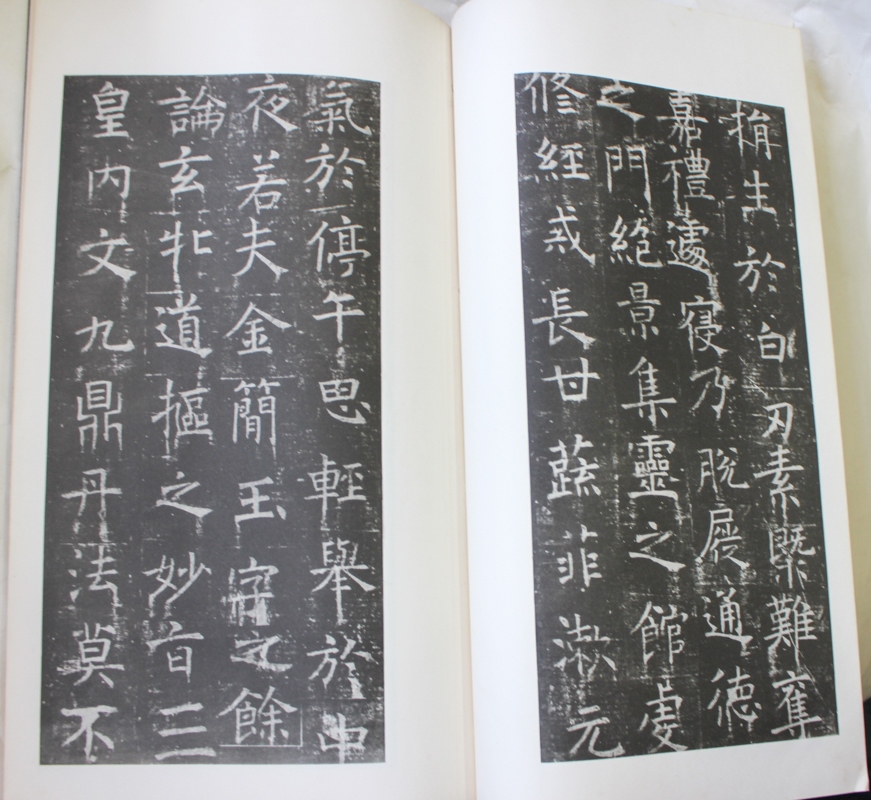 捐生於白刃素槩難奪
嘉禮遽寢乃脫屣通德
之門絕景集靈之館虔
修經戒長甘蔬菲漱元
氣於停午思輕舉於中
夜若夫金簡玉字之餘
論玄牝道樞之妙旨三
皇內文九鼎丹法莫不